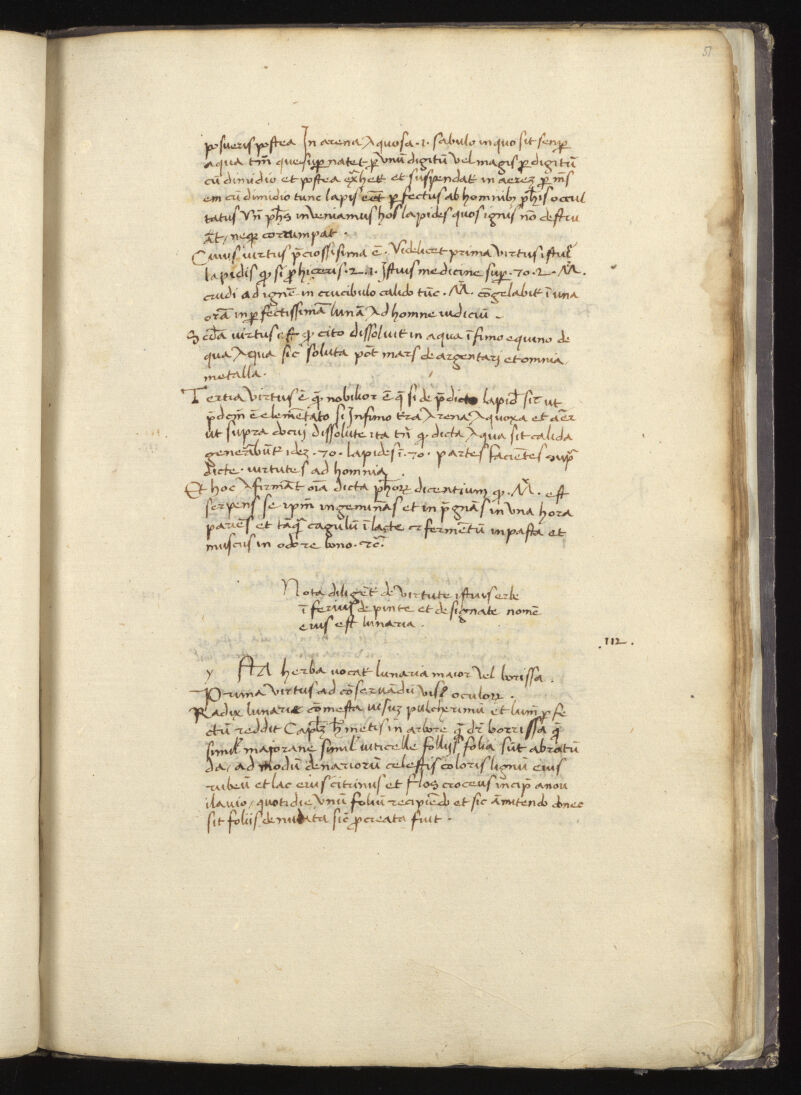 51
posueris postea In arena Aquosa .i. sabulo in quo sit semp̄
aqua tm̄ que sup̱ natet p̱ vnū digitū vel magis p̱ digitū
cū dimidio et postea ex̄hēt et suspendat in aerez p̱ m̄s
em cū dimidio tunc lapis eēt p̱fectus ab hominib̄ ph̄is occul
tatus Vn̄ ph̄s inveniamus hos lapides quos ignis nō destru
āt / neq̄ corumpat .
Cuius virtus p̄ciosissima ē . Videlicet prima virtus istiū
lapidis q̱ si p̱hiceris . 2 . i . Istius medicine sup̱ . 70 . 2 . M̄ .
crudi ad ignē in crucibulo calido tūc . M̄ . cōgelabit ī una
orā in p̱fectissimā lunā Ad homne iudiciū .
Scd̄a virtus est q̱ cito dissoluit in aqua ī fimo equino de
qua Aqua sic soluta pōt mars de argentari et omnia
metalla .
Tertia virtus ē q̄ nobilior ē q̄ si de p̄dicto lapid̄ sic ut
p̄dcm̄ ē elemētato si In fimo Arena Aquoxa et aēr
ut supra docui dissolute ita tn̄ q̱ dicta Aqua sit calida
generabūt idez . 70 . lapides ī . 70 . partes facientes sup̄
dicte . virtutes ad homnia
Et hoc Afirmāt oīa dicta ph̄or̄ dicentium q̱ . M̄ . est
serpens se ip̄m ingeminās et inp̄gnās in una hora
paries et taq̄ cagulū ī lacte et fermētū in pasta et
muscus in odore bono . rc̄ .
Nota diligēt de virtute istius erbe
ī ferius depinte et designate nomē
eius est lunaria .
.112.
y AA herba vocat lunaria maior vel borissa .
Prima virtus ad cōservandū vis̄ oculor̄ .
Radix lunarie cōmesta visuz pulcherimū et lum̄ p̱fe
ctū reddit Cap̄lz h̄ mētis in arbore q̄ dr̄ borrissa q̄
simil̄ majorane simil̄ viticelle folliis folia sūt abrotū
da / ad modū denariorū celestis coloris lignū eius
rubeū et lac eius citrinus et flos croceus incip̄ a nou
iluuio / quotidie vnū foliū recipiēdo et sic āmitendo donec
sit foliis denudata sic p̱creata fuit .